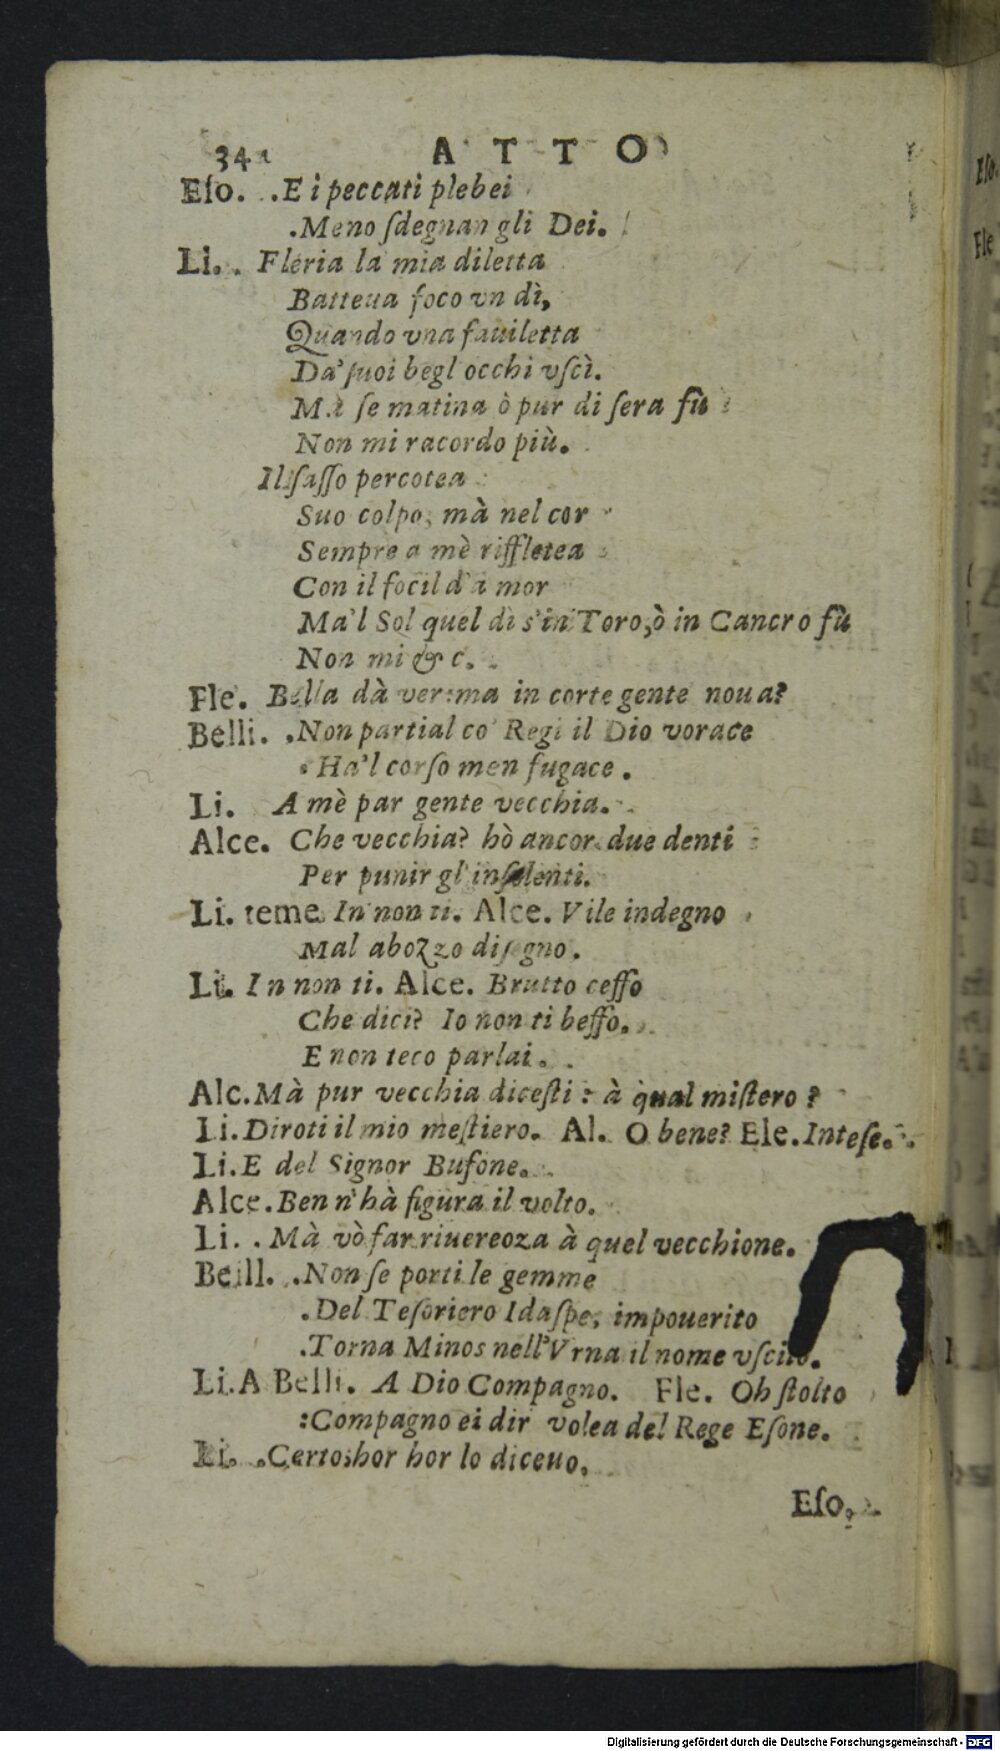 34 ATTO
Eſo. .E i peccati plebei
.Meno ſdegnan gli Dei.
Li. Fleria la mia diletta
Batteua foco vn dì,
Quando vna fauiletta
Da'ſuoi begl'occhi vſcì.
Mà ſe matina ò pur di ſera fù
Non mi racordo più.
Il ſaſſo percotea
Suo colpo, mà nel cor
Sempre a mè riffletea
Con il focil d'a mor
Ma'l Sol quel dì s'in Toro,ò in Cancro fù
Non mi &c.
Fle. Bella dà ver:ma in corte gente noua?
Belli. .Non partial co' Regi il Dio vorace
.Ha'l corſo men fugace.
Li. A mè par gente vecchia.
Alce. Che vecchia? hò ancor due denti
Per punir gl'inſolenti.
Li. teme In non ti. Alce. Vile indegno
Mal abozzo diſegno.
Li. In non ti. Alce. Brutto ceſſo
Che dici? Io non ti beffo.
E non teco parlai.
Alc. Mà pur vecchia diceſti: à qual miſtero?
Li. Diroti il mio meſtiero. Al. O bene? Ele. Inteſe.
Li. E del Signor Bufone.
Alce. Ben n'hà figura il volto.
Li. . Mà vò far riuereoza à quel vecchione.
Beill. .Non ſe porti le gemme
.Del Teſoriero Idaſpe, impouerito
.Torna Minos nell'Vrna il nome vſcito.
Li. A Belli. A Dio Compagno. Fle. Oh ſtolto
:Compagno ei dir volea del Rege Eſone.
Li. .Certo:hor hor lo diceuo.
Eſo.
Digitalisierung gefördert durch die Deutsche Forschungsgemeinschaft - DFG